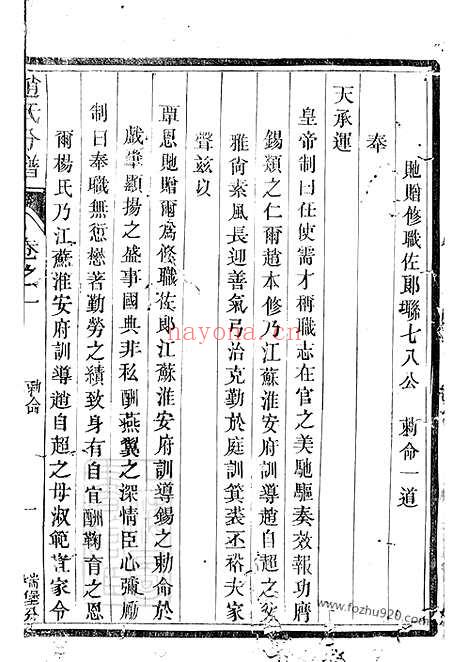 貤贈修職佐郎聯七八公　勅命一道
奉
天承運
皇帝制曰任使需才稱職志在官之美馳驅奏效報功膺
錫類之仁爾趙本修乃江蘇淮安府訓導趙自超之父
雅尚素風長迎善氣弓治克勤於庭訓箕裘丕裕夫家
聲茲以
覃恩貤贈爾爲修職佐郎江蘇淮安府訓導錫之勅命於
戲肇顯揚之盛事國典非私酬燕翼之深情臣心彌勵
制曰奉職無愆懋著勤勞之績致身有自宜酬鞠育之恩
爾楊氏乃江蘇淮安府訓導趙自超之母淑範宜家令
趙氏分譜
卷之一
勅命
一
hayona.cn
www.fozhu920.com